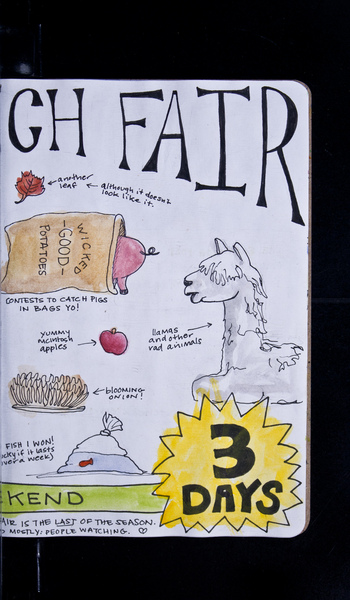 GH FAIR
another
leaf
although it doesn't
look like it.
WICKED
-GOOD-
POTATOES
CONTESTS TO CATCH PIGS
IN BAGS YO!
yummy
mcintosh
apples
llamas
and other
rad animals
blooming
onion!
FISH I WON!
ucky if it lasts
over a week)
3
DAYS
EKEND
FAIR IS THE LAST OF THE SEASON.
MOSTLY: PEOPLE WATCHING. ♡